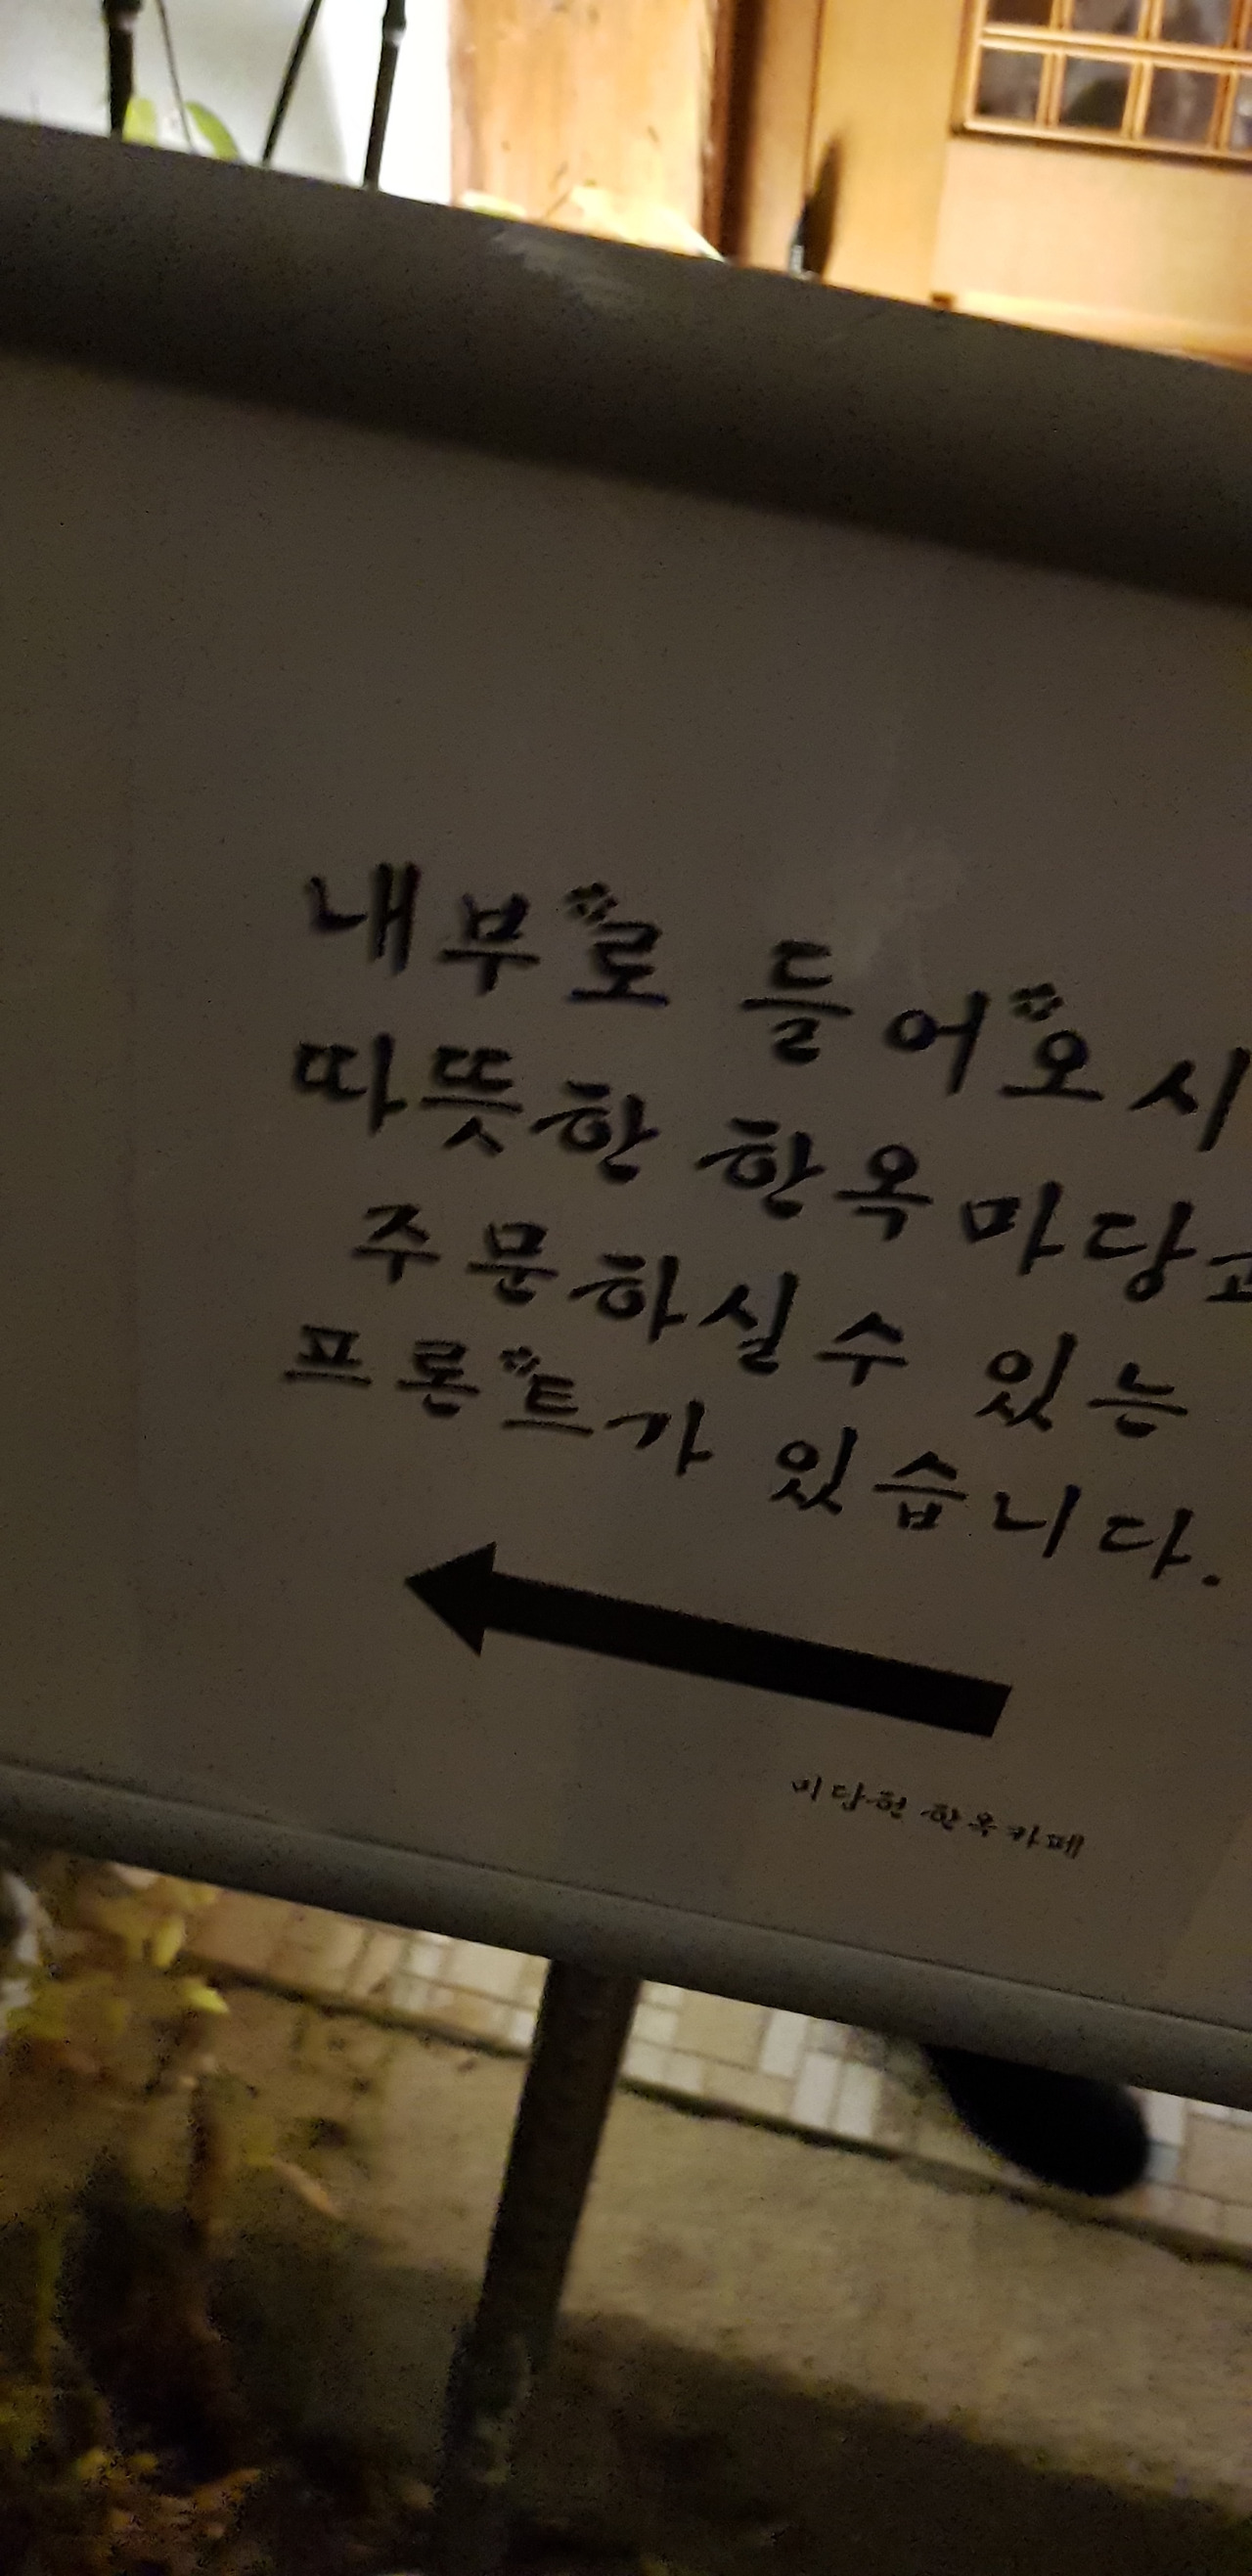 내부로 들어오시
따뜻한 한옥마당
주문하실수 있는
프론트가 있습니다.
미담헌 한옥카페